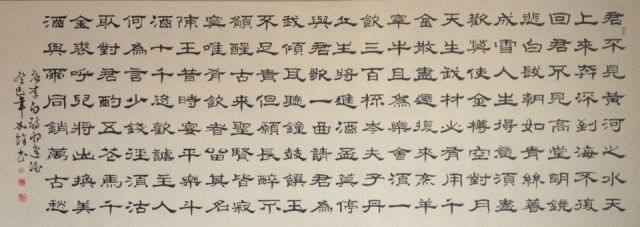 君不見黃河之水天
上來奔流到海不復
回君不見高堂明鏡
悲白髮朝如青絲暮
成雪人生得意須盡
歡莫使金樽空對月
天生我材必有用千
金散盡還復來烹羊
宰牛且為樂會須一
飲三百杯岑夫子丹
丘生將進酒盃莫停
與君歌一曲請君為
我傾耳聽鐘鼓饌玉
不足貴但願長醉不
願醒古來聖賢皆寂
寞唯有飲者留其名
陳王昔時宴平樂斗
酒十千恣歡謔主人
何為言少錢徑須沽
取對君酌五花馬千
金裘呼兒將出換美
酒與爾同銷萬古愁
唐李白詩將進酒
癸巳年